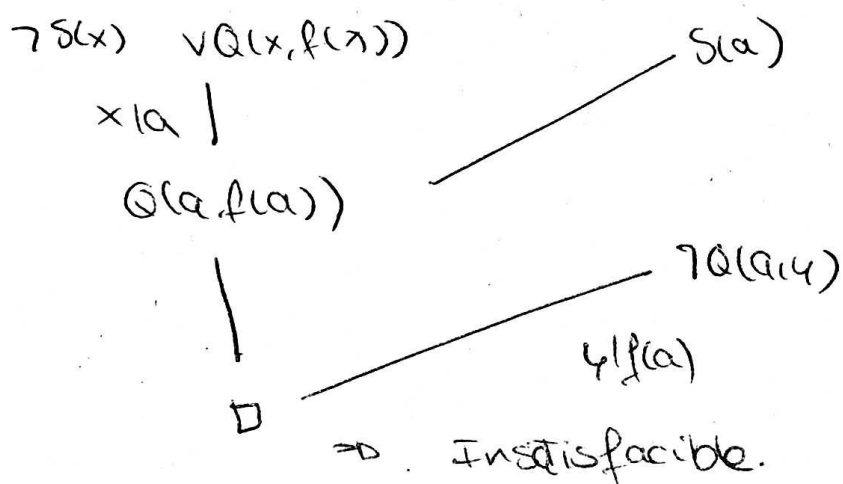 ¬S(x) ∨Q(x,f(x)) S(a)
x|a
Q(a,f(a))
¬Q(a,y)
y|f(a)
□
⇒ . Insatisfacible.